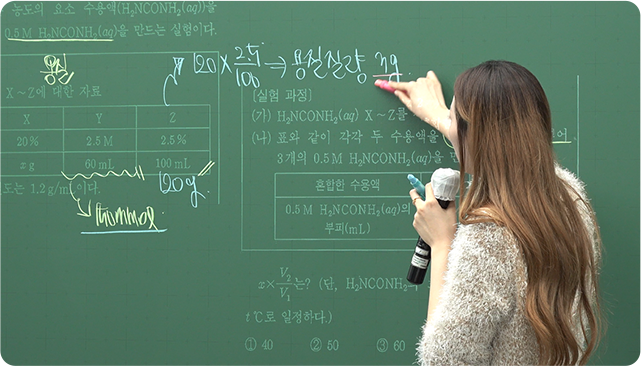 농도의 요소 수용액(H₂NCONH₂(aq))을
0.5 M H₂NCONH₂(aq)을 만드는 실험이다.
용질
X～Z에 대한 자료
X Y Z
20% 2.5 M 2.5%
x g 60 mL 100 mL
도는 1.2 g/mL이다.
120g
150mmol
120 × 2.5/100 ⇒ 용질질량 3g
[실험 과정]
(가) H₂NCONH₂(aq) X～Z를
(나) 표와 같이 각각 두 수용액을
3개의 0.5 M H₂NCONH₂(aq)을 만
혼합한 수용액
0.5 M H₂NCONH₂(aq)의
부피(mL)
x × V₂/V₁는? (단, H₂NCONH₂
t ℃로 일정하다.)
① 40 ② 50 ③ 60